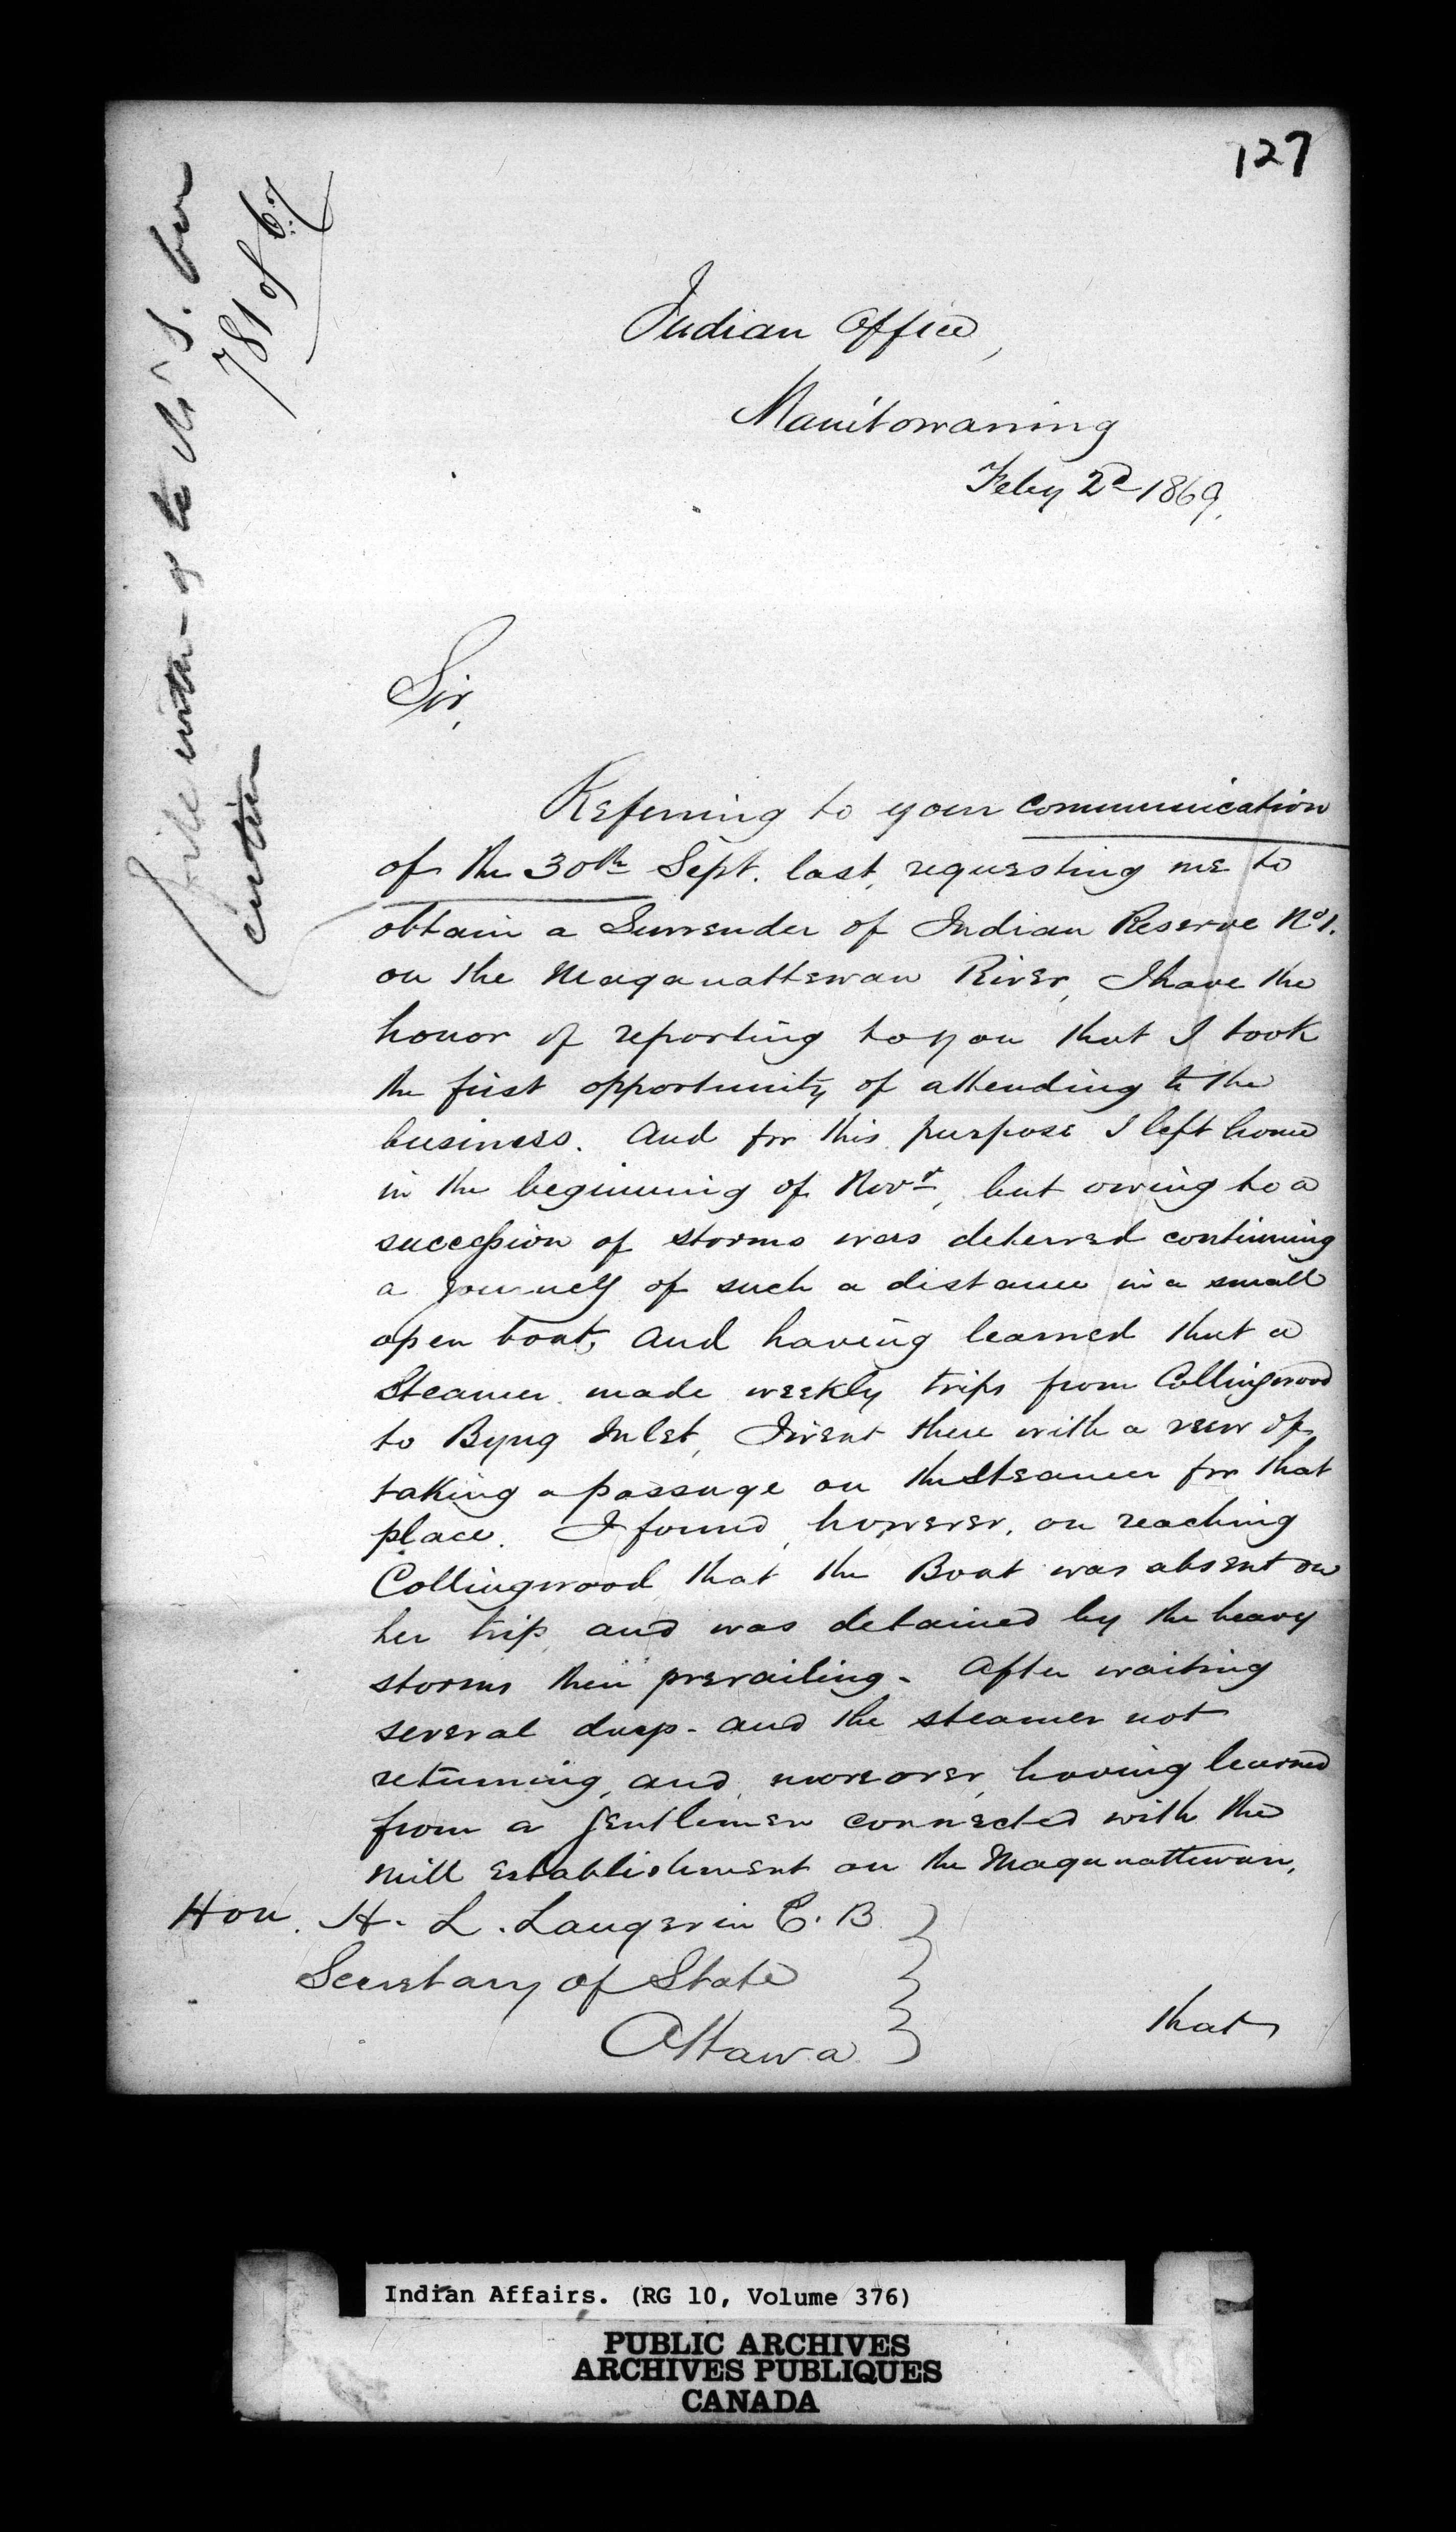 127
781 of 67
Indian Office,
Manitowaning
Feby 2d 1869.
Sir,
Referring to your communication
of the 30th Sept. last, requesting me to
obtain a Surrender of Indian Reserve No 1.
on the Maganattewan River, I have the
honor of reporting to you that I took
the first opportunity of attending to the
business. And for this purpose I left home
in the beginning of Novr, but owing to a
succession of storms was deterred continuing
a journey of such a distance in a small
open boat, and having learned that a
Steamer made weekly trips from Collingwood
to Byng Inlet, I went there with a view of
taking a passage on the Steamer for that
place. I found, however, on reaching
Collingwood that the Boat was absent on
her trip and was detained by the heavy
storms then prevailing. After waiting
several days - and the steamer not
returning, and, moreover, having learned
from a gentleman connected with the
Mill establishment on the Maganattewan,
Hon. H. L. Langevin C. B.
Secretary of State
Ottawa
that
Indian Affairs. (RG 10, Volume 376)
PUBLIC ARCHIVES
ARCHIVES PUBLIQUES
CANADA